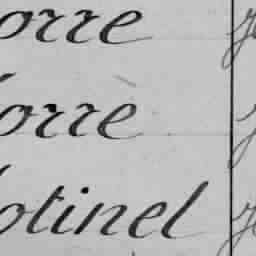 orre
orrè
otinel